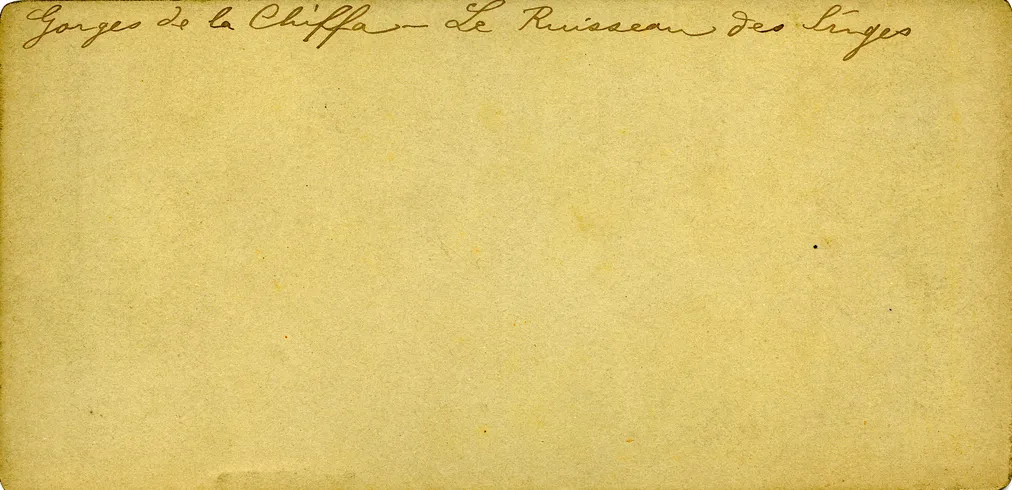 Gorges de la Chiffa – Le Ruisseau des Singes